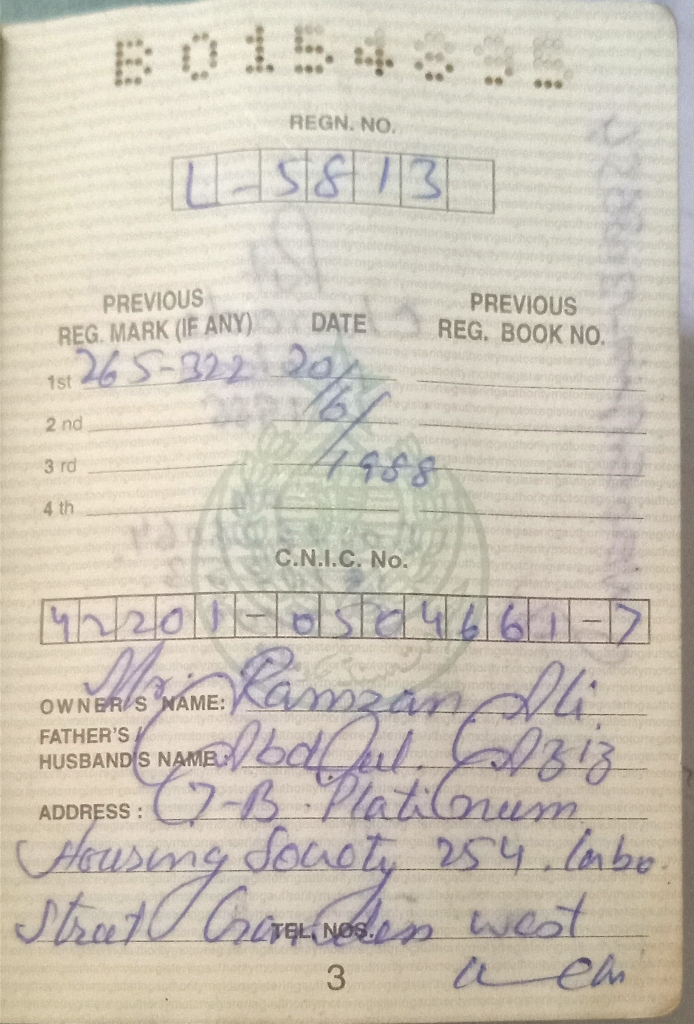 B0154835
REGN. NO.
L-5813
PREVIOUS REG. MARK (IF ANY) DATE PREVIOUS REG. BOOK NO.
1st 265-322 20/6/1988
2 nd
3 rd
4 th
C.N.I.C. No.
42201-0504661-7
OWNER'S NAME: Mr. Ramzan Ali
FATHER'S /
HUSBAND'S NAME: Abdul Aziz
ADDRESS: 7-B Platinum
Housing Society 254
Street Garden west
TEL. NOS.
3